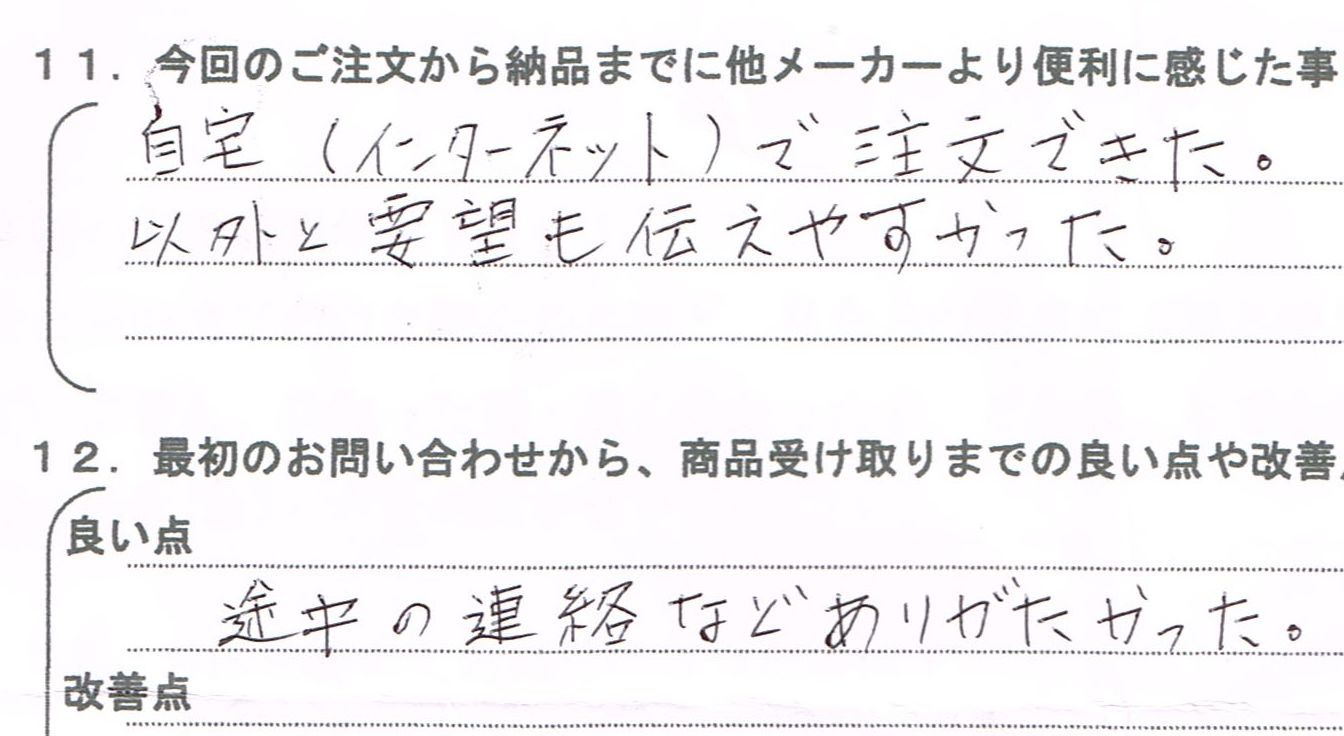 11．今回のご注文から納品までに他メーカーより便利に感じた事
自宅（インターネット）で注文できた。
以外と要望も伝えやすかった。
12．最初のお問い合わせから、商品受け取りまでの良い点や改善
良い点
途中の連絡などありがたかった。
改善点